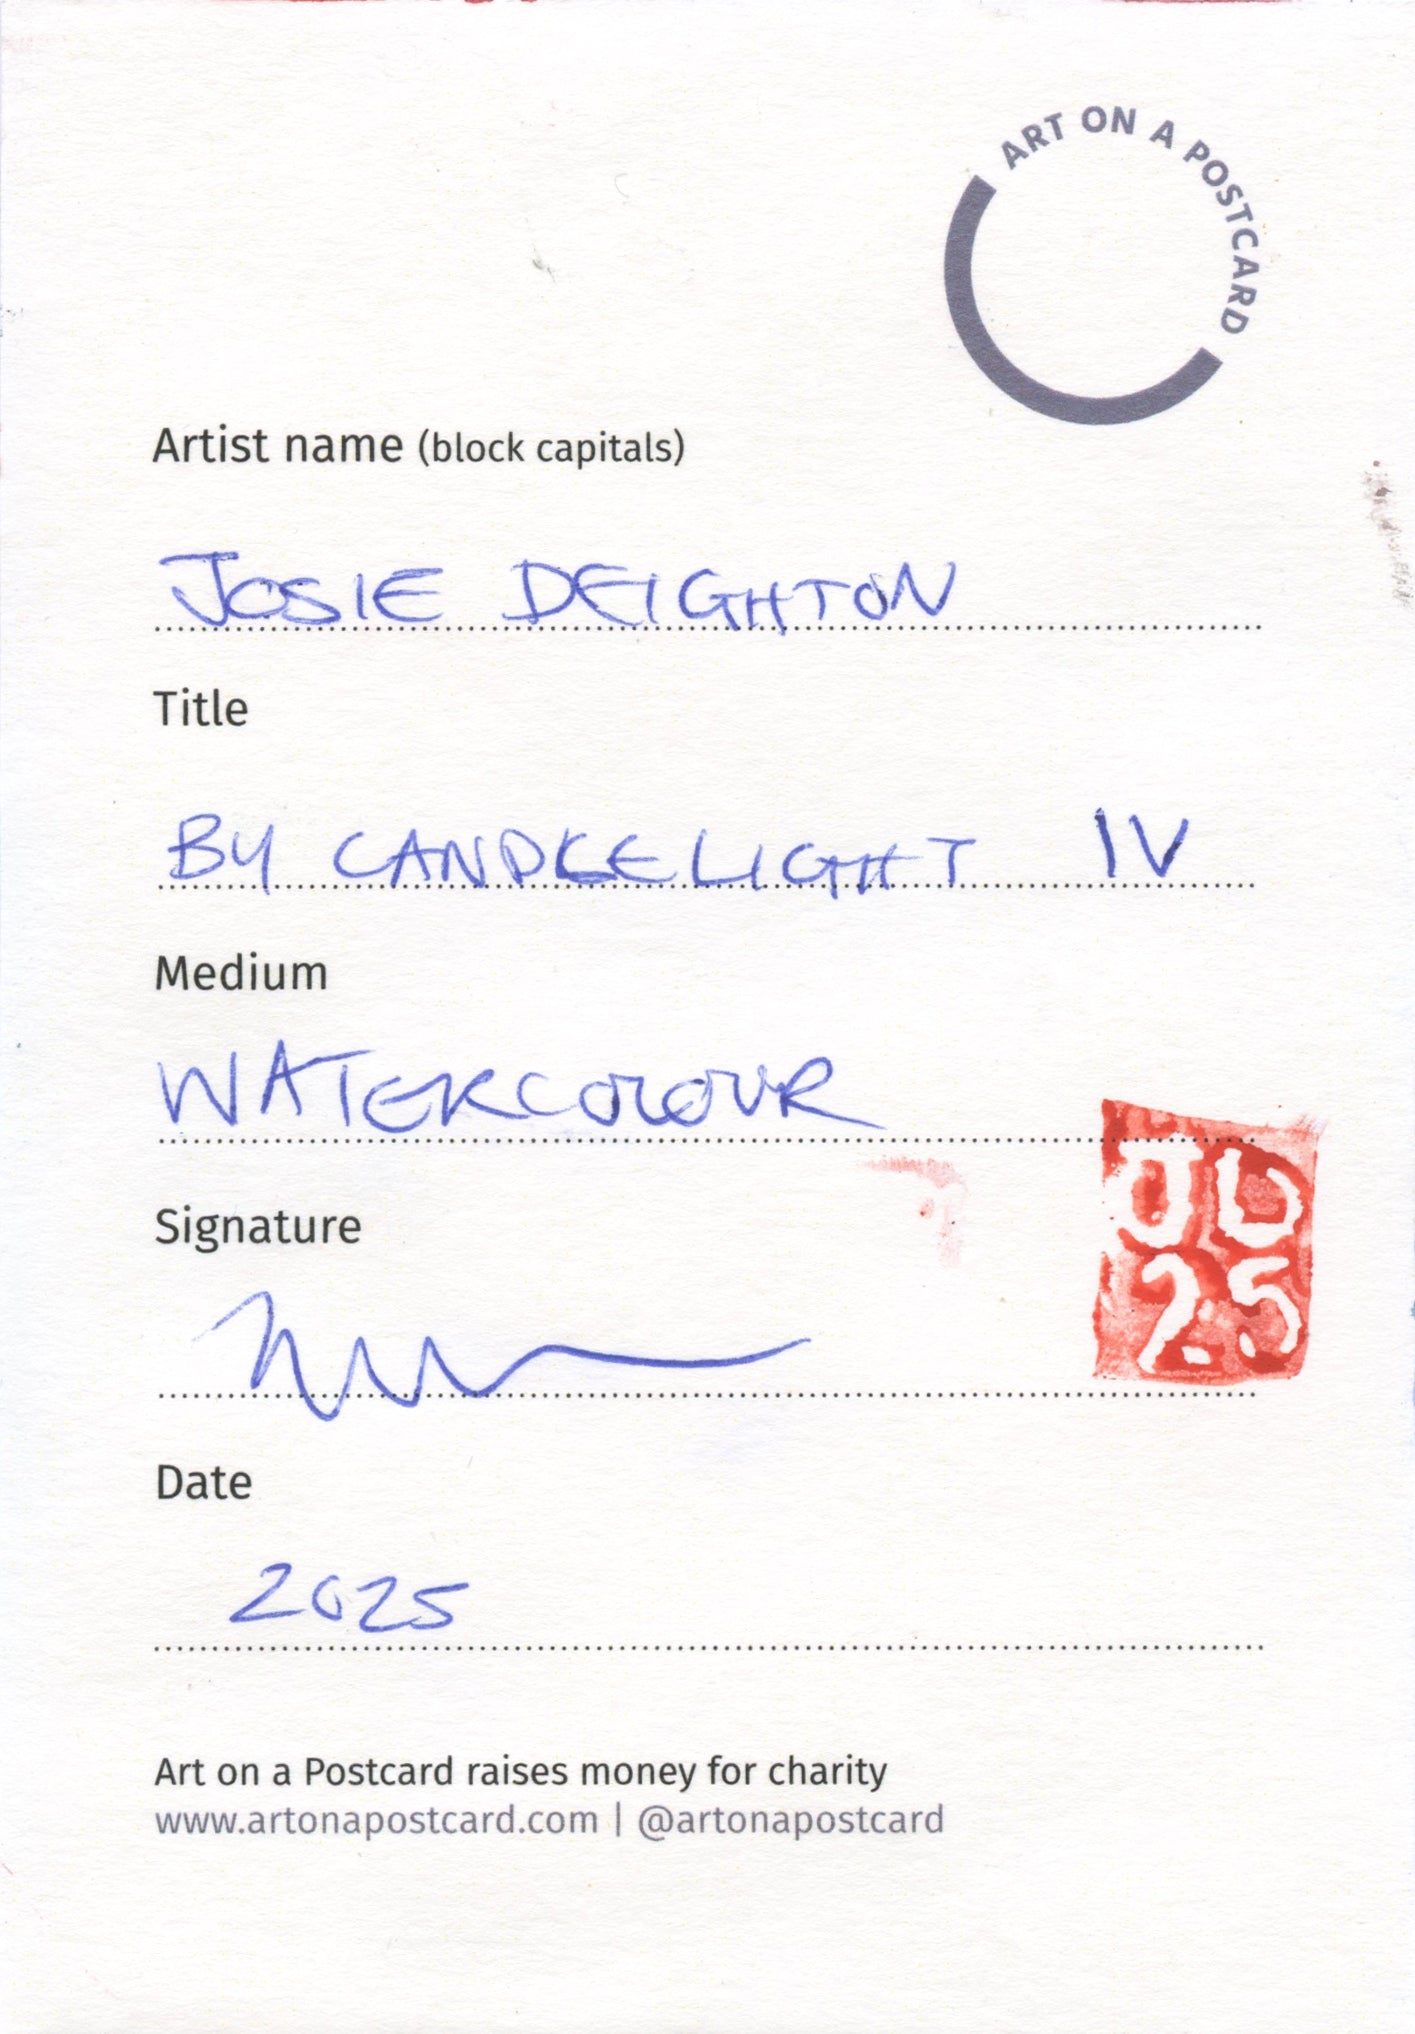 ART ON A POSTCARD
Artist name (block capitals)
JOSIE DEIGHTON
Title
BY CANDLELIGHT IV
Medium
WATERCOLOUR
Signature
JD
25
Date
2025
Art on a Postcard raises money for charity
www.artonapostcard.com | @artonapostcard